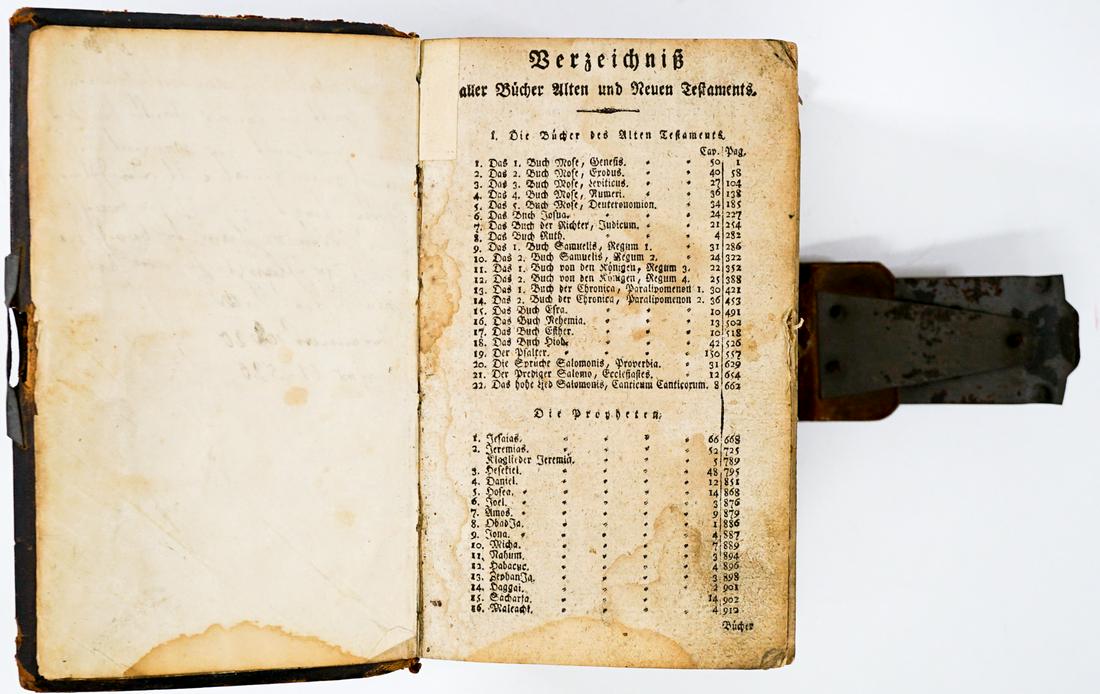 Verzeichniß
aller Bücher Alten und Neuen Testaments.
I. Die Bücher des Alten Testaments.
Cap. Pag.
1. Das 1. Buch Mose, Genesis. 50 1
2. Das 2. Buch Mose, Exodus. 40 58
3. Das 3. Buch Mose, Leviticus. 27 104
4. Das 4. Buch Mose, Numeri. 36 138
5. Das 5. Buch Mose, Deuteronomion. 34 185
6. Das Buch Josua. 24 227
7. Das Buch der Richter, Judicum. 21 254
8. Das Buch Ruth. 4 282
9. Das 1. Buch Samuelis, Regum 1. 31 286
10. Das 2. Buch Samuelis, Regum 2. 24 322
11. Das 1. Buch von den Königen, Regum 3. 22 352
12. Das 2. Buch von den Königen, Regum 4. 25 388
13. Das 1. Buch der Chronica, Paralipomenon 1. 30 421
14. Das 2. Buch der Chronica, Paralipomenon 2. 36 453
15. Das Buch Esra. 10 491
16. Das Buch Nehemia. 13 502
17. Das Buch Esther. 10 518
18. Das Buch Hiob. 42 526
19. Der Psalter. 150 557
20. Die Sprüche Salomonis, Proverbia. 31 629
21. Der Prediger Salomo, Ecclesiastes. 12 654
22. Das hohe Lied Salomonis, Canticum Canticorum. 8 662
Die Propheten.
1. Jesaias. 66 668
2. Jeremias. 52 725
Klaglieder Jeremiä. 5 789
3. Hesekiel. 48 795
4. Daniel. 12 851
5. Hosea. 14 868
6. Joel. 3 876
7. Amos. 9 879
8. ObadJa. 1 886
9. Jona. 4 887
10. Micha. 7 889
11. Nahum. 3 894
12. Habacuc. 4 896
13. ZephanJa. 3 898
14. Haggai. 2 901
15. Sacharja. 14 902
16. Maleachi. 4 912
Bücher